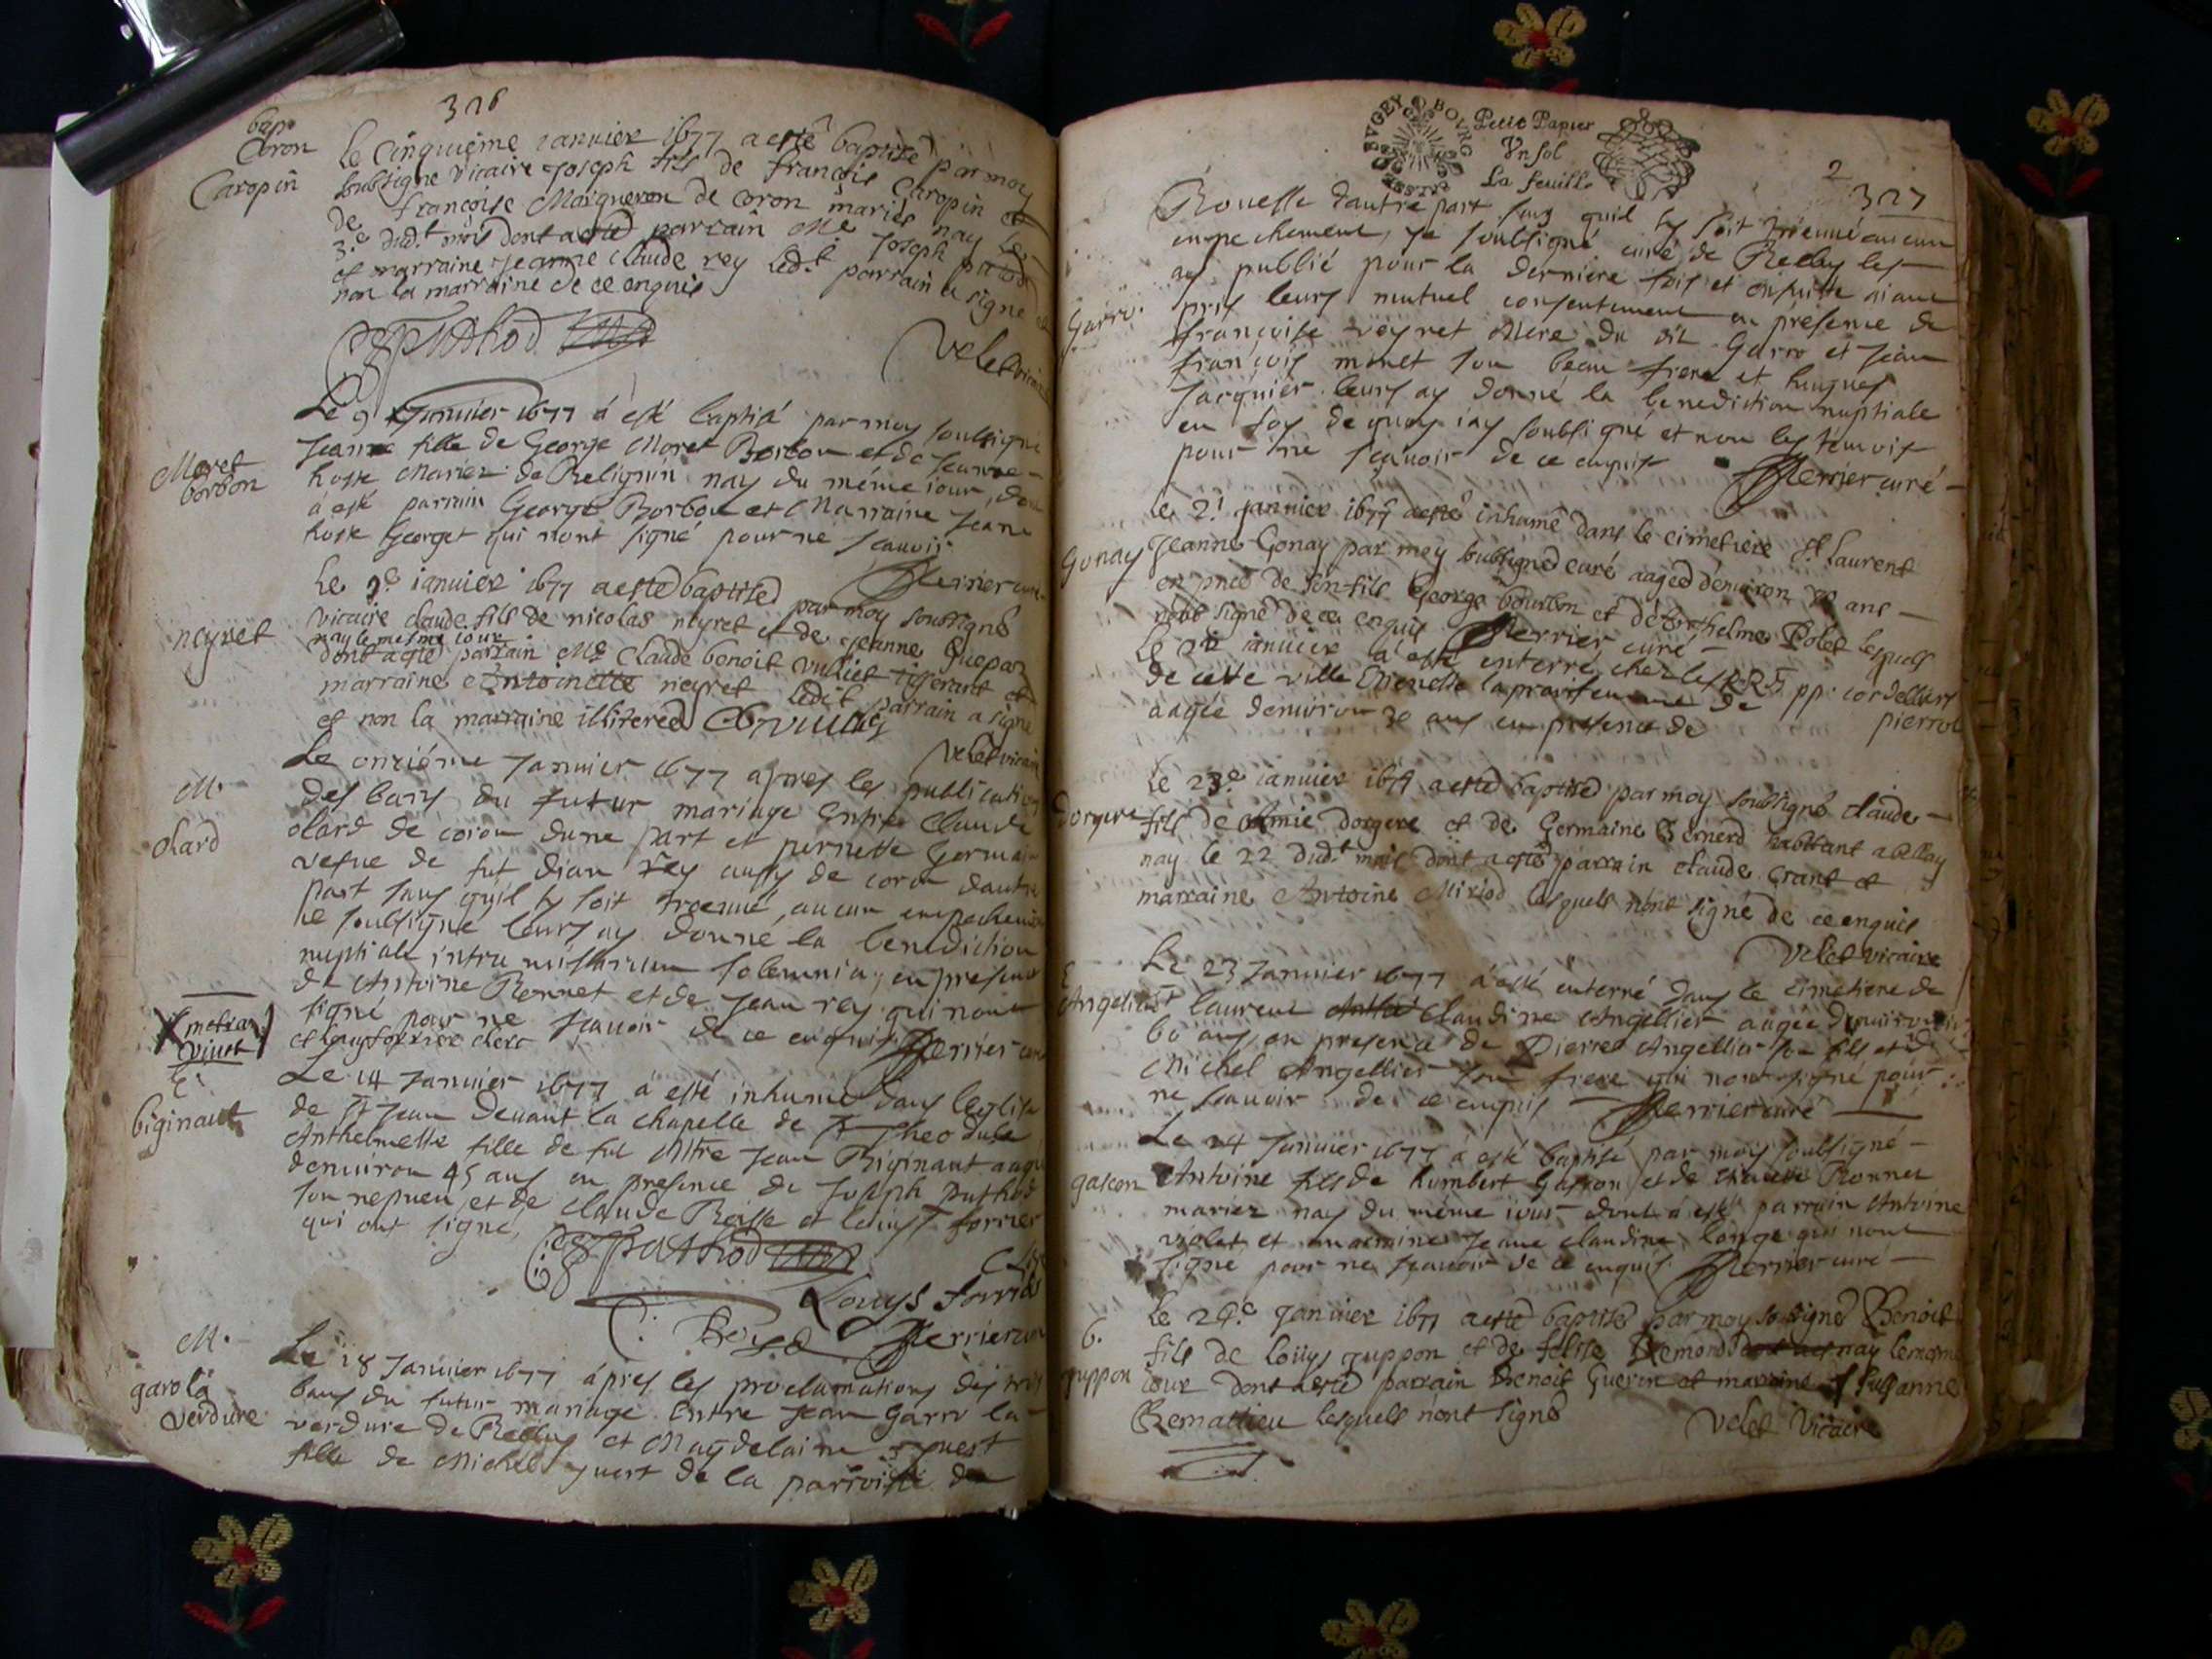 326
bap.
Coron
Caropin
le Cinquieme ianvier 1677 a esté baptisé par moy
soubsigne vicaire Joseph fils de François Caropin et
de françoise Maigneron de Coron mariés nay le
3.e dud.t mois dont a esté parrain Me Joseph
et marraine Jeanne Claude rey led.t parrain a signe et
non la marraine de ce enquis
Velet vicaire
Moret
borbon
Le 9 Janvier 1677 à esté baptisé par moy soubsigné
Jeanne fille de George Moret Borbon et de Jeanne
hoste Mariez de Relignin nay du même iour, dont
à esté parrain George Borbon et Marraine Jeane
hoste George qui nont signé pour ne scauoir
Perrier curé
neyret
Le 9.e ianuier 1677 a esté baptisé par moy soubsigné
vicaire claude fils de nicolas neyret et de Jeanne
nay le mesme iour
dont a esté parrain Me Claude benoit Vulliet et
marraine Antoinette neyret ledit parrain a signé
et non la marraine illiterée
Velet vicaire
M.
olard
Le onziéme Januier 1677 apres les publications
des bans du futur mariage Entre Claude
olard de coron dune part et pernette Germain
vefue de fut Jean rey aussy de coron dautre
part sans quil sy soit treuué, aucun empechement
ie soubsigné leurs ay donné la benediction
nuptiale intra missarum solemnia, en presence
de Antoine Bonnet et de Jean rey qui nont
signé pour ne scauoir de ce enquis Perrier curé
et louys forrier clerc
E.
biginaut
Le 14 Januier 1677 à esté inhumé dans leglise
de St Jean deuant la chapelle de St Theodule
Anthelmette fille de fut Mitre Jean Biginaut aagée
denuiron 45 ans en presence de Joseph puthod
son nepueu et de Claude Boisse et louis forrier
qui ont signé,
Puthod
Louys forrier
Perrier curé
M.
garo la
verdure
Le 18 Januier 1677 àpres les proclamations des trois
bans du futur mariage Entre Jean Garro la
verdure de Belley et Magdelaine
fille de Michel de la parroisse de
BVGEY BOVRG
Petit Papier
Vn sol
La feuille
2
327
Garro.
dautre part sans quil sy soit treuué aucun
empechement, Je soubsigné curé de Belley les
ay publié pour la derniere fois et ensuitte aiant
pris leurs mutuel consentement en presence de
françoise veyret Mere du dit Garro et Jean
françois monet son beau frere et hugues
Jacquier leurs ay donné la benediction nuptiale
en foy de quoy iay soubsigné et non les temois
pour ne scauoir de ce enquis Perrier curé
Gonay
le 21 januier 1677 a esté inhumé dans le cimetiere St laurent
Jeanne Gonay par moy soubsigné curé aagée denuiron 70 ans
en pnce de son fils George bourbon et de Anthelme Polet lesquels
nont signé de ce enquis Perrier curé
Le ianuier à esté enterré chez les R.R. pp. cordelliers
de cette ville de pierrot
aagée denuiron 30 ans en presence de
Dorgere
Le 23.e ianuier 1677 a esté baptisé par moy soubsigné Claude
fils de Aimé dorgere et de Germaine Bernerd habitant a Bellay
nay le 22 dud.t mois dont a esté parrain Claude Crant et
marraine Antoine Miriod lesquels nont signé de ce enquis
Velet vicaire
E
Angelier
Le 23 Januier 1677 à esté enterré dans le cimetiere de
St laurent Claudine Angellier aagée denuiron
60 ans en presence de Pierre Angellier son fils et de
Michel Angellier son frere qui nont signé pour
ne scauoir de ce enquis Perrier curé
gascon
Le 24 Januier 1677 à esté baptisé par moy soubsigné
Antoine fils de humbert Gascon et de Claude Bonnet
mariez nay du même iour dont à esté parrain Antoine
violet et marraine Jeane claudine longe qui nont
signé pour ne scauoir de ce enquis Perrier curé
b.
guppon
Le 26.e Januier 1677 a esté baptisé par moy sousigné Benoit
fils de Loüys guppon et de felise Demond nay le mesme
iour dont a esté parrain Benoit Guerin et marraine Susanne
Bemattieu lesquels n'ont signé
Velet Vicaire